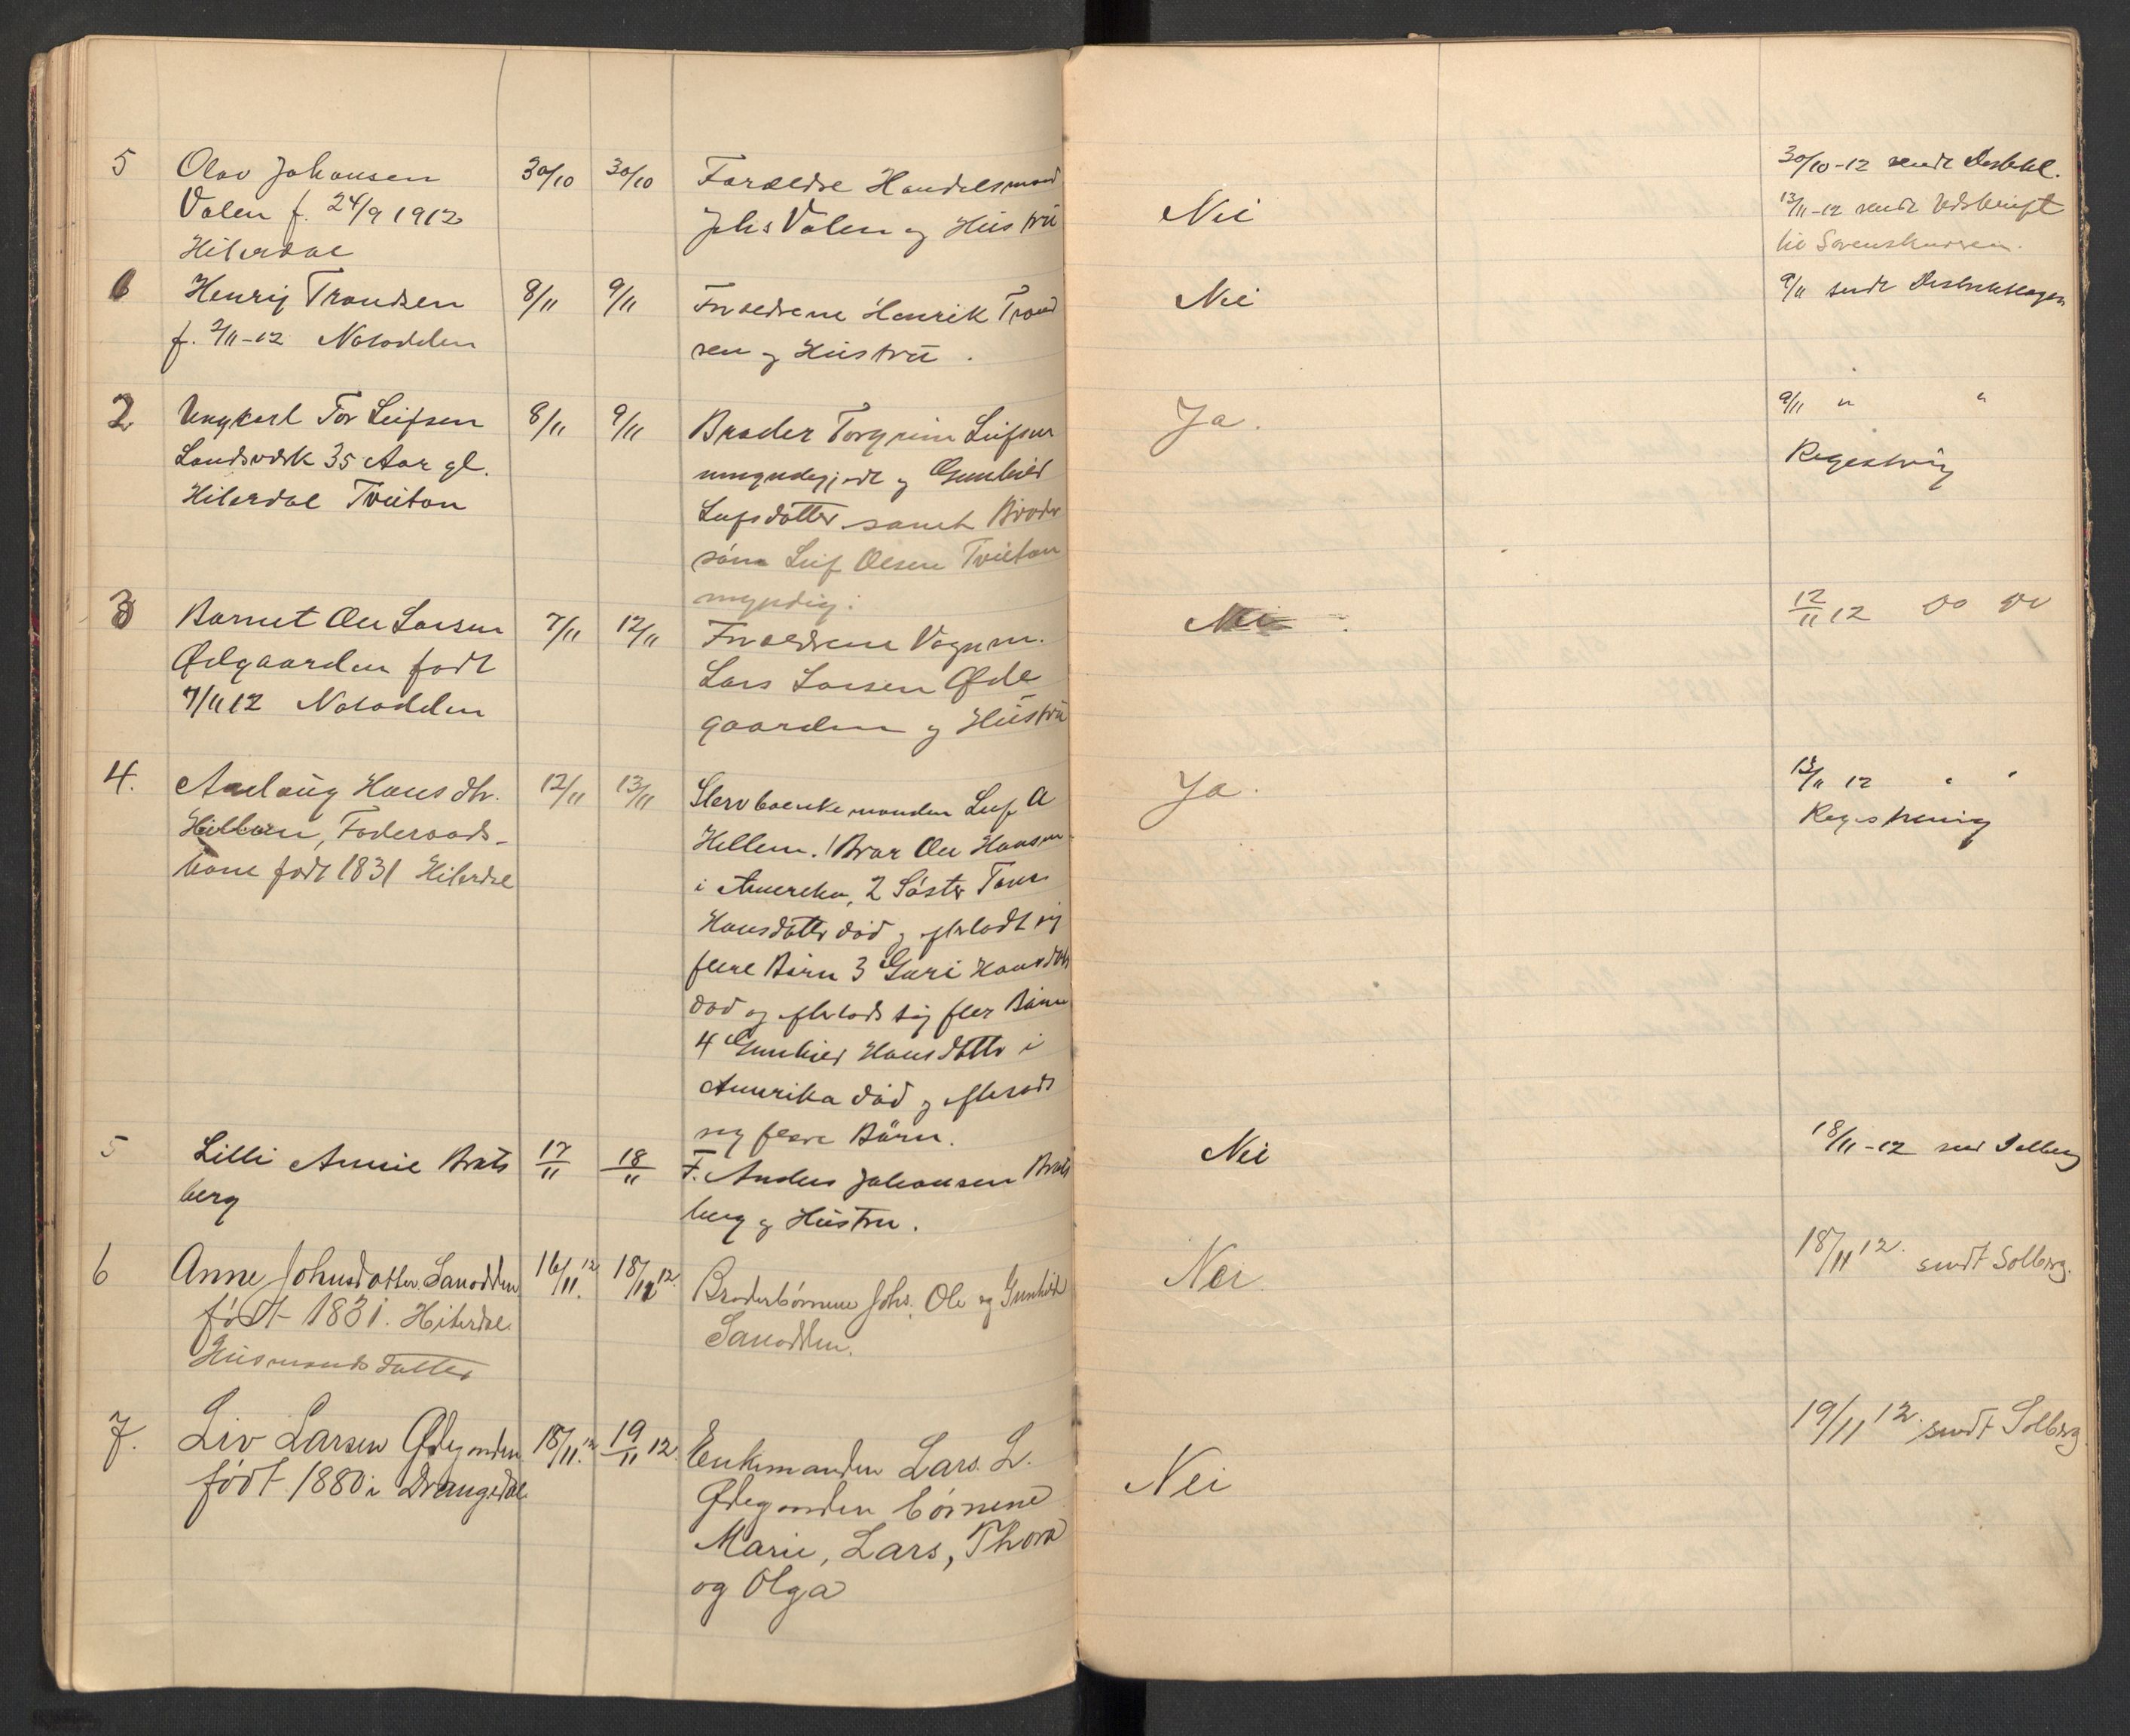 5 Olav Johansen 30/10 30/10 Forældre Handelsmand
Valen f. 24/9 1912 Johs Valen og Hustru Nei
Hiterdal
30/10-12 sendt
13/11-12 sendt Udskrift
til Sorenskriveren.
6 Henrij Trondsen 8/11 9/11 Forældrene Henrik Trond Nei 9/11 sendt
f. 2/11-12 Notodden sen og Hustru.
2 Ungkarl Tor Leifsen 8/11 9/11 Broder Torgrim Leifsen Ja. 9/11 " "
Landsværk 35 Aar gl. umyndiggjort og Gunhild Registrering
Hiterdal Tveitan Leifsdatter samt Broder
søn Leif Olsen Tveitan
myndig.
3 Barnet Ole Larsen 7/11 12/11 Forældrene Vognm. Nei 12/11 12 Do Do
Ødegaarden født Lars Larsen Øde
7/11 12 Notodden gaarden og Hustru
4. Aaslaug Hansdtr. 12/11 13/11 Stervboenkemanden Leif A Ja. 13/11 12 " "
Hellem, Foderaads- Hellem. 1 Bror Ole Hansen Registrering
kone født 1831 Hiterdal i Amerika, 2 Søster Tone
Hansdatter død og efterladt sig
flere Børn 3 Guri Hansdtr
død og efterlods sig fler Børn
4 Gunhild Hansdatter i
Amerika død og efterlods
sig flere Børn.
5 Lilli Annie Brats 17/11 18/11 F. Anders Johansen Brats Nei 18/11-12 send Solberg
berg berg og Hustru.
6 Anne Johnsdatter Sanodden 16/11 12. 18/11 12. Broderbørnene Johs. Ole og Gunhild Nei. 18/11 12. sendt Solberg.
født 1831. Hiterdal. Sanodden.
Husmandsdatter
7. Liv Larsen Ødegarden 18/11 12. 19/11 12. Enkemanden Lars. L. Nei 19/11 12. sendt Solberg
født 1880 i Drangedal Ødegarden børnene
Marie, Lars, Thora
og Olga